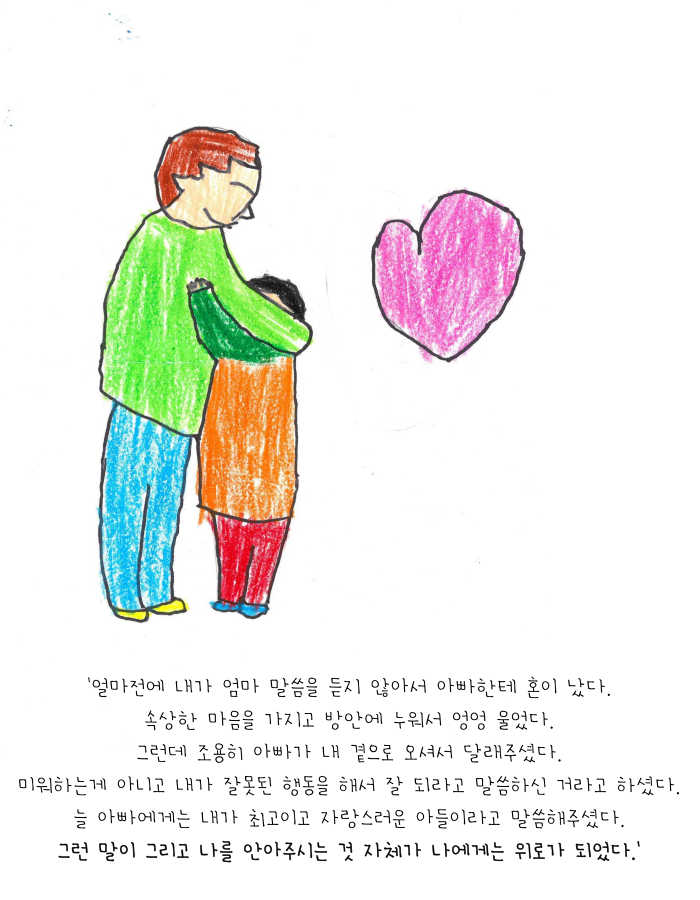 '얼마전에 내가 엄마 말씀을 듣지 않아서 아빠한테 혼이 났다.
속상한 마음을 가지고 방안에 누워서 엉엉 울었다.
그런데 조용히 아빠가 내 곁으로 오셔서 달래주셨다.
미워하는게 아니고 내가 잘못된 행동을 해서 잘 되라고 말씀하신 거라고 하셨다.
늘 아빠에게는 내가 최고이고 자랑스러운 아들이라고 말씀해주셨다.
그런 말이 그리고 나를 안아주시는 것 자체가 나에게는 위로가 되었다.'